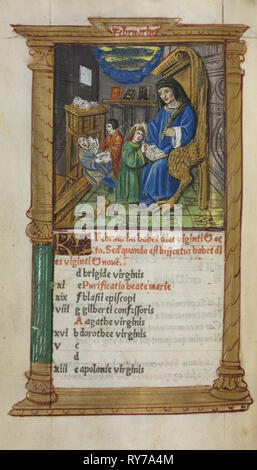 Februarius
KL Februarius habet dies viginti Octo
to. Sed quando est bissextus habet di
es viginti Nouē.
d brigide virginis
xi e Purificatio beate marie
xix f blasii episcopi
viii g gilberti confessoris
A agathe virginis
xvi b dorothee virginis
v c
d
xiii e apolonie virginis
alamy
Image ID: RY7A4M
www.alamy.com